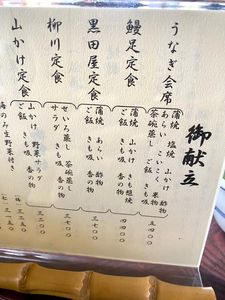 御献立
うなぎ会席
蒲焼 塩焼 山かけ
あらい こいこく 果物
茶碗蒸し ご飯 きも吸 香の物
五四〇〇
鰻定定食
蒲焼 山かけ きも想焼
ご飯 きも吸 香の物
四四〇〇
黒田屋定食
蒲焼 あらい 酢物
ご飯 きも吸 香の物
三七〇〇
柳川定食
せいろ蒸し 茶碗蒸し
サラダ きも吸 香の物
三七〇〇
山かけ定食
山かけ 野菜サラダ
ご飯 きも吸 香の物
三二〇〇